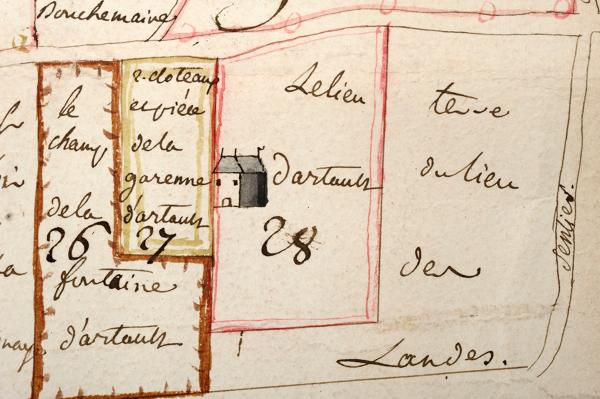 Bouchemaine
le
champ
dela
26
fontaine
d'artault
2. cloteaux
et piéce
dela
garenne
d'artault
27
Lelieu
d'artault
28
terre
du lieu
des
Landes.
Sentier.